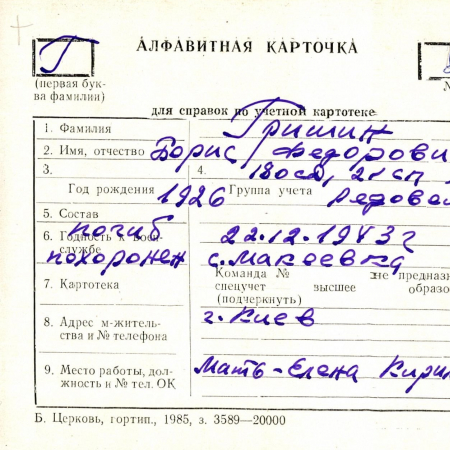 Г
АЛФАВИТНАЯ КАРТОЧКА
(первая бук-
ва фамилии)
для справок по учетной картотеке
1. Фамилия Гришин
2. Имя, отчество Борис Федорови
3. 4. 180сд, 21сп
Год рождения 1926 Группа учета Рядово
5. Состав
погиб 22.12.1943г
6. Годность к воен-
службе
похоронен с. Макеевка
7. Картотека Команда № не предназна
спецучет высшее образо
(подчеркнуть)
8. Адрес м-житель-
ства и № телефона г. Киев
9. Место работы, дол-
жность и № тел. ОК Мать - Елена Кири
Б. Церковь, гортип., 1985, з. 3589—20000